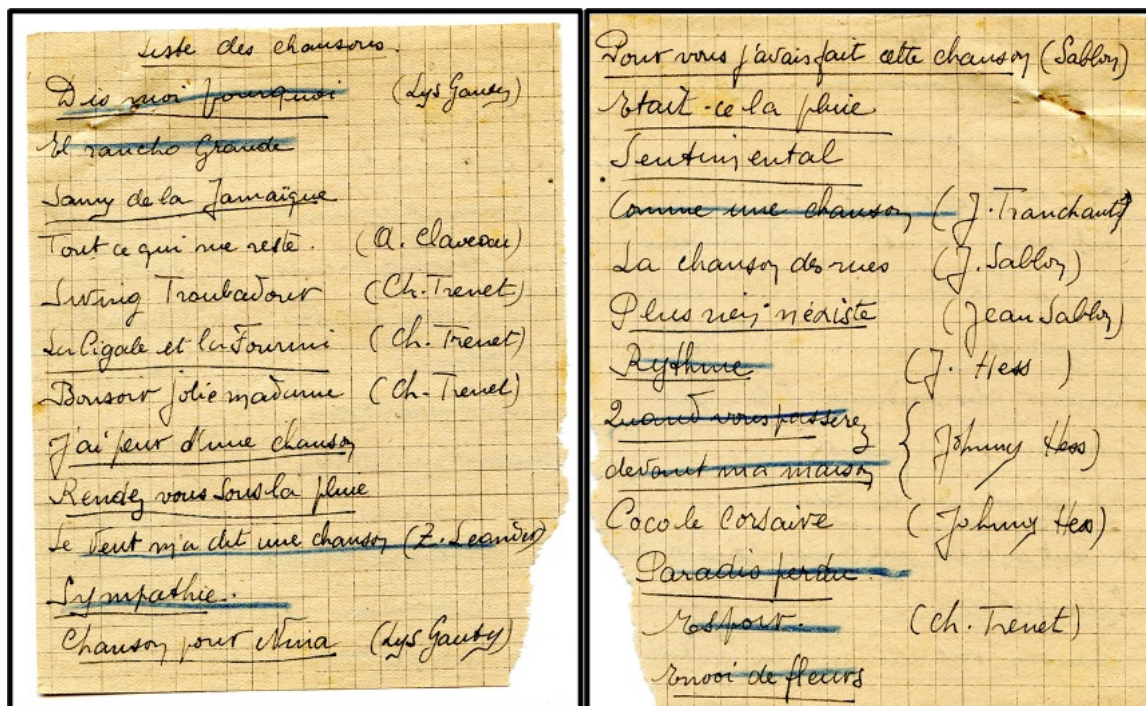 Liste des chansons.
Dis moi pourquoi (Lys Gauty)
El rancho Grande
Samy de la Jamaïque
Tout ce qui me reste. (A. Claveau)
Swing Troubadour (Ch. Trenet)
La Cigale et la Fourmi (Ch. Trenet)
Bonsoir jolie madame (Ch. Trenet)
J'ai peur d'une chanson
Rendez vous sous la pluie
Le Vent m'a dit une chanson (Z. Leander)
Sympathie.
Chanson pour Nina (Lys Gauty)
Pour vous j'avais fait cette chanson (Sablon)
Etait-ce la pluie
Sentimental
Comme une chanson (J. Tranchant)
La chanson des rues (J. Sablon)
Plus rien n'existe (Jean Sablon)
Rythme (J. Hess)
Quand vous passerez
devant ma maison { Johnny Hess)
Coco le Corsaire (Johnny Hess)
Paradis perdu.
Espoir. (Ch. Trenet)
Envoi de fleurs